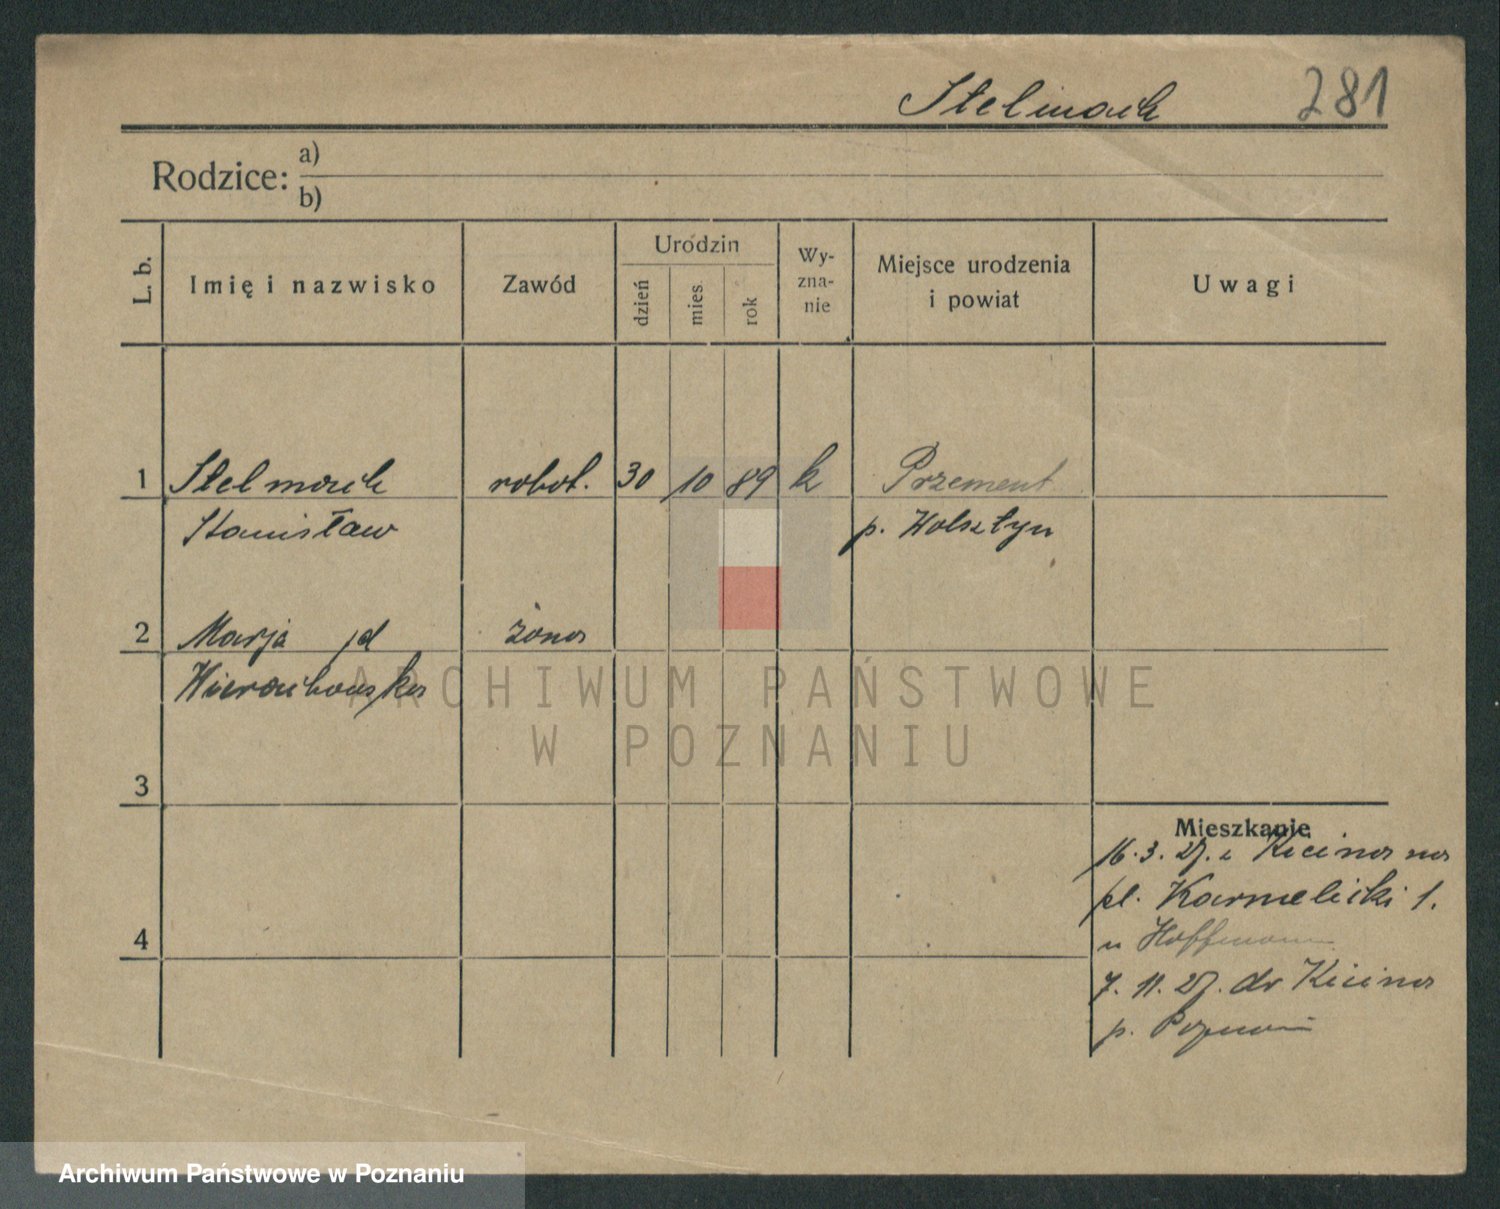 Stelmach 281
Rodzice: a)
b)
L. b.
Imię i nazwisko
Zawód
Urodzin
dzień
mies.
rok
Wy-
zna-
nie
Miejsce urodzenia
i powiat
Uwagi
1 Stelmach robot. 30 10 89 k Przement
Stanisław p. Wolsztyn
2 Marja żona
ARCHIWUM PAŃSTWOWE
W POZNANIU
3
Mieszkanie
16.3.27. z Kicina na
pl. Karmelicki 1.
4
u Hoffmann
7.11.27. do Kicina
p. Poznań
Archiwum Państwowe w Poznaniu